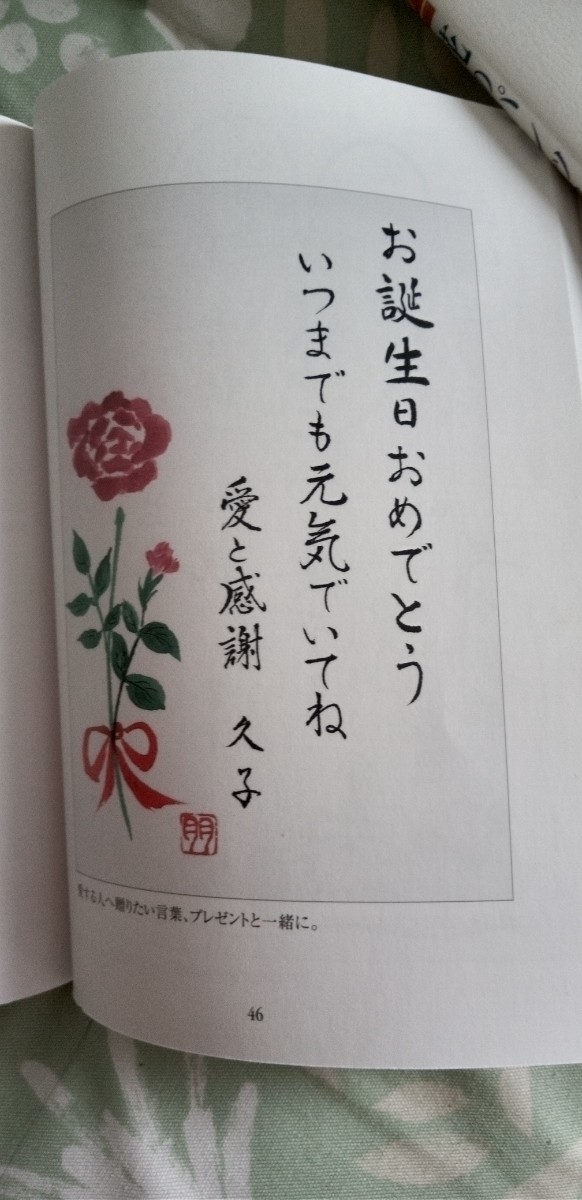 お誕生日おめでとう
いつまでも元気でいてね
愛と感謝　久子
朋
愛する人へ贈りたい言葉、プレゼントと一緒に。
46